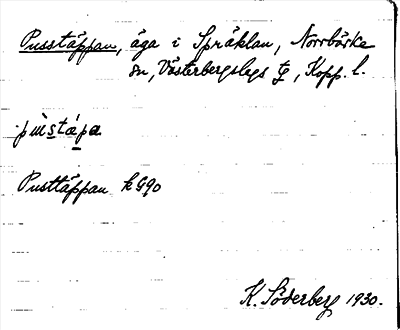 Pusstäppan, äga i Språklan, Norrbärke
sn, Västerbergslags tg, Kopp. l.
pùstápa
Pusttäppan k G90
K. Söderberg 1930.